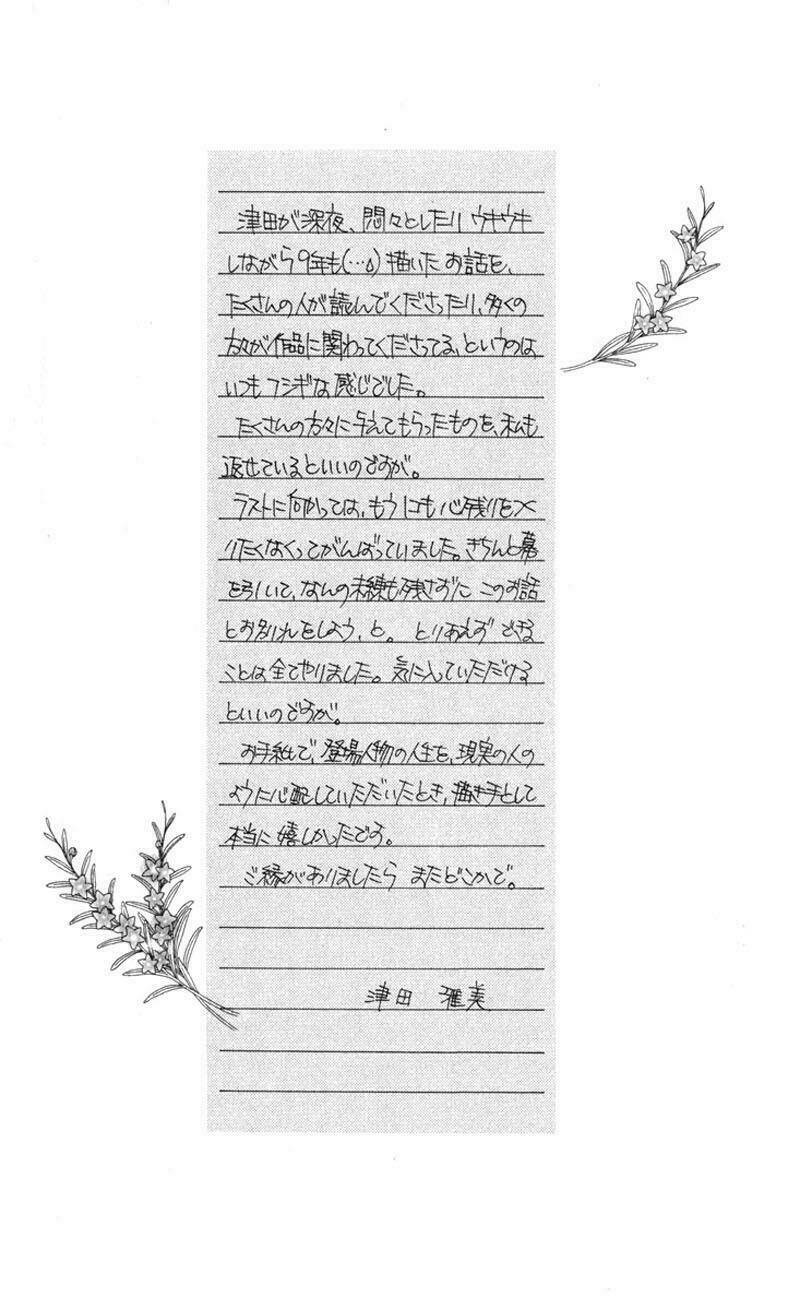 津田が深夜、悶々としたり ウキウキ
しながら9年も(…△)描いた お話を、
たくさんの人が読んでくださったり、多くの
方々が作品に関わってくださってる、というのは
いつもフシギな感じでした。
たくさんの方々に与えてもらったものを、私も
返せているといいのですが。
ラストに向かっては、もう にも心残りをつく
りたくなくってがんばっていました。きちんと幕
を引いて、なんの未練も残さずに このお話
とお別れをしよう、と。 とりあえず できる
ことは全てやりました。気に入っていただける
といいのですが。
お手紙で、登場人物の人生を、現実の人の
ように心配していただいたとき、描き手として
本当に嬉しかったです。
ご縁がありましたら またどこかで。
津田 雅美